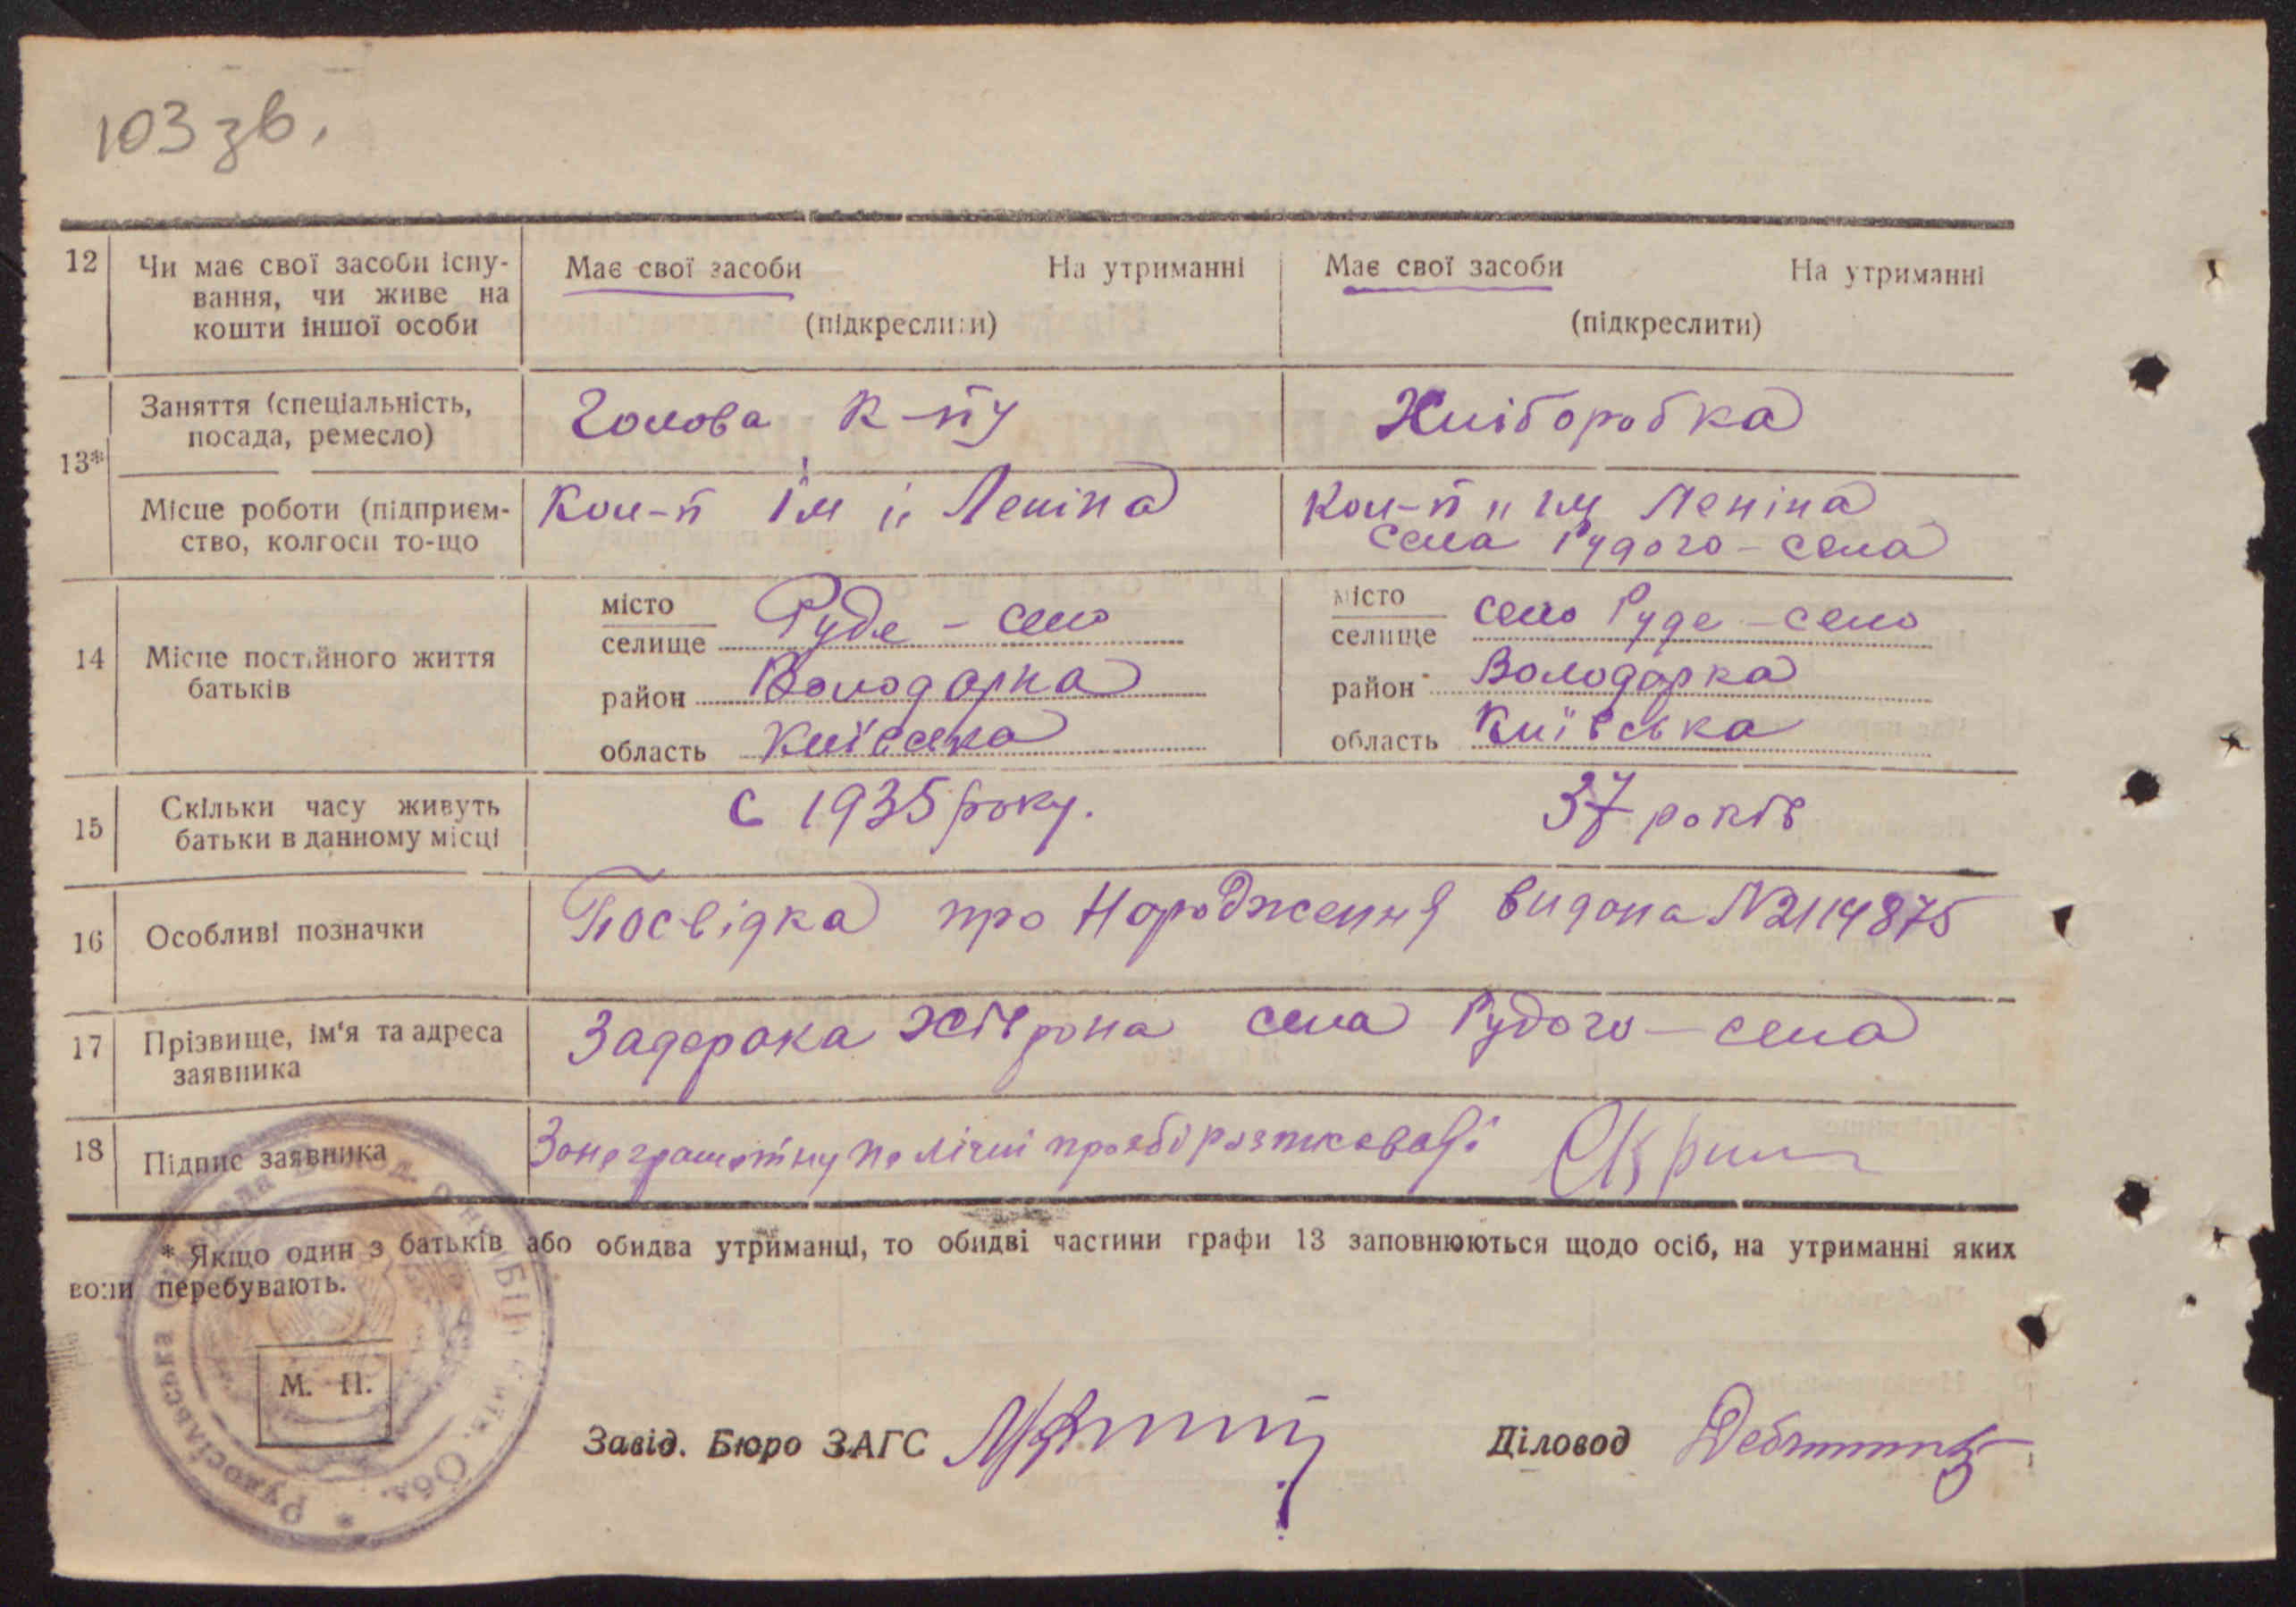 103 зв.
12 Чи має свої засоби існу- Має свої засоби На утриманні Має свої засоби На утриманні
вання, чи живе на
кошти іншої особи (підкреслити) (підкреслити)
13* Заняття (спеціальність, Голова К-пу Хліборобка
посада, ремесло)
Місце роботи (підприєм- Кол-п ім Леніна Кол-п ім Леніна
ство, колгосп то-що села Рудого-села
14 Місце постійного життя
батьків
місто
селище Руде-село
район Володарка
область Київська
місто
селище село Руде-село
район Володарка
область Київська
15 Скільки часу живуть С 1935 року. 37 років
батьки в данному місці
16 Особливі позначки Посвідка про Народження видана №2114875
17 Прізвище, ім'я та адреса Задерака села Рудого-села
заявника
18 Підпис заявника
* Якщо один з батьків або обидва утриманці, то обидві частини графи 13 заповнюються щодо осіб, на утриманні яких
вони перебувають.
М. П.
Завід. Бюро ЗАГС Діловод
Рудосільська Київ. Обл.